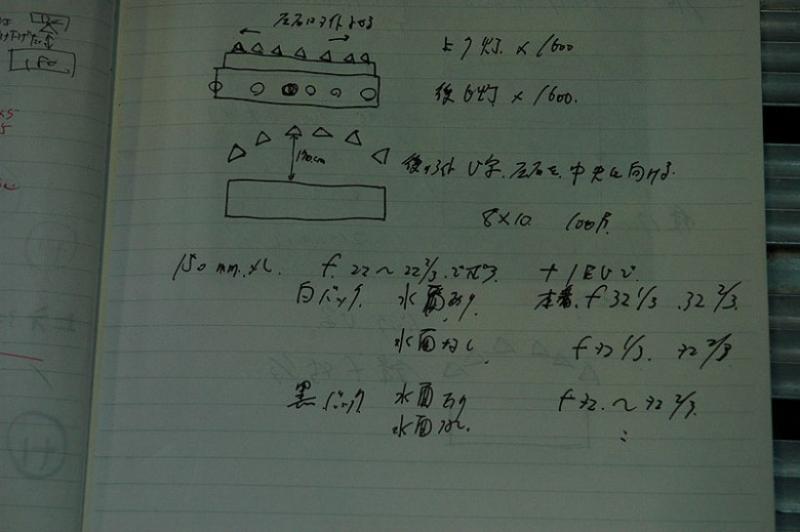 左右にライトよせる
上7灯 × 1600
後6灯 × 1600.
170cm
後ライト U字. 左右を. 中央に向ける.
8×10. 100F.
150mm.
f. 22〜22 2/3. で +1EVで
白バック. 水面あり. 本番. f 32 1/3 . 32 2/3.
水面なし. f 32 1/3. 32 2/3
黒バック 水面あり f 32. 〜 32 2/3.
水面なし.